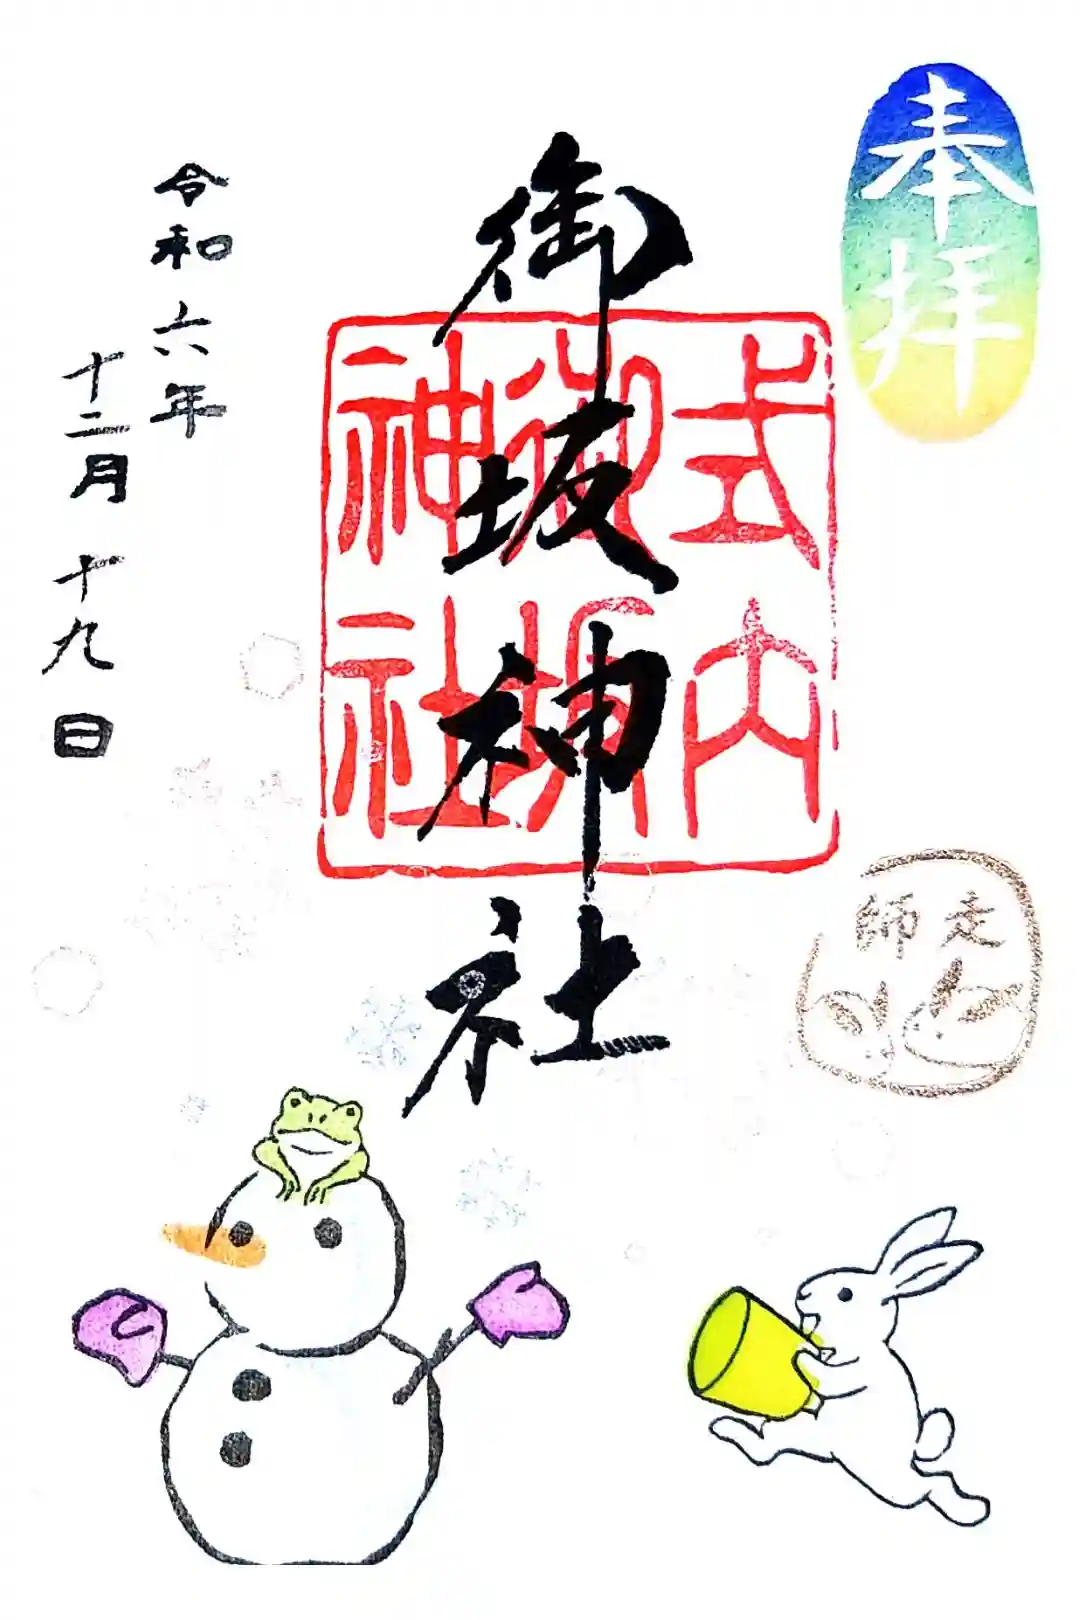 奉拝
式内
御坂
神社
御坂神社
走
師
令和六年
十二月十九日